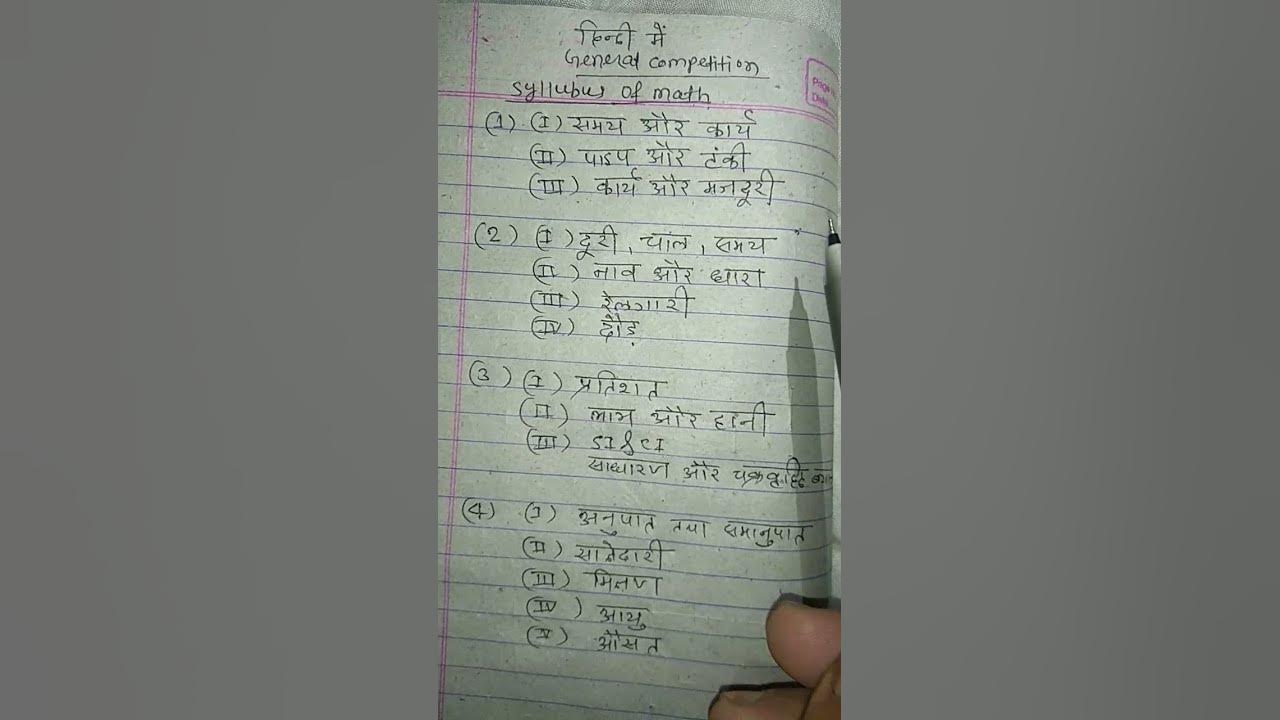 हिन्दी में
General competition
Syllubus of math
(1) (I) समय और कार्य
(II) पाइप और टंकी
(III) कार्य और मजदूरी
(2) (I) दूरी, चाल, समय
(II) नाव और धारा
(III) रेलगारी
(IV) दौड़
(3) (I) प्रतिशत
(II) लाभ और हानी
(III) SI & CI
साधारण और चक्रवृद्धि
(4) (I) अनुपात तथा समानुपात
(II) साझेदारी
(III) मिश्रण
(IV) आयु
(V) औसत